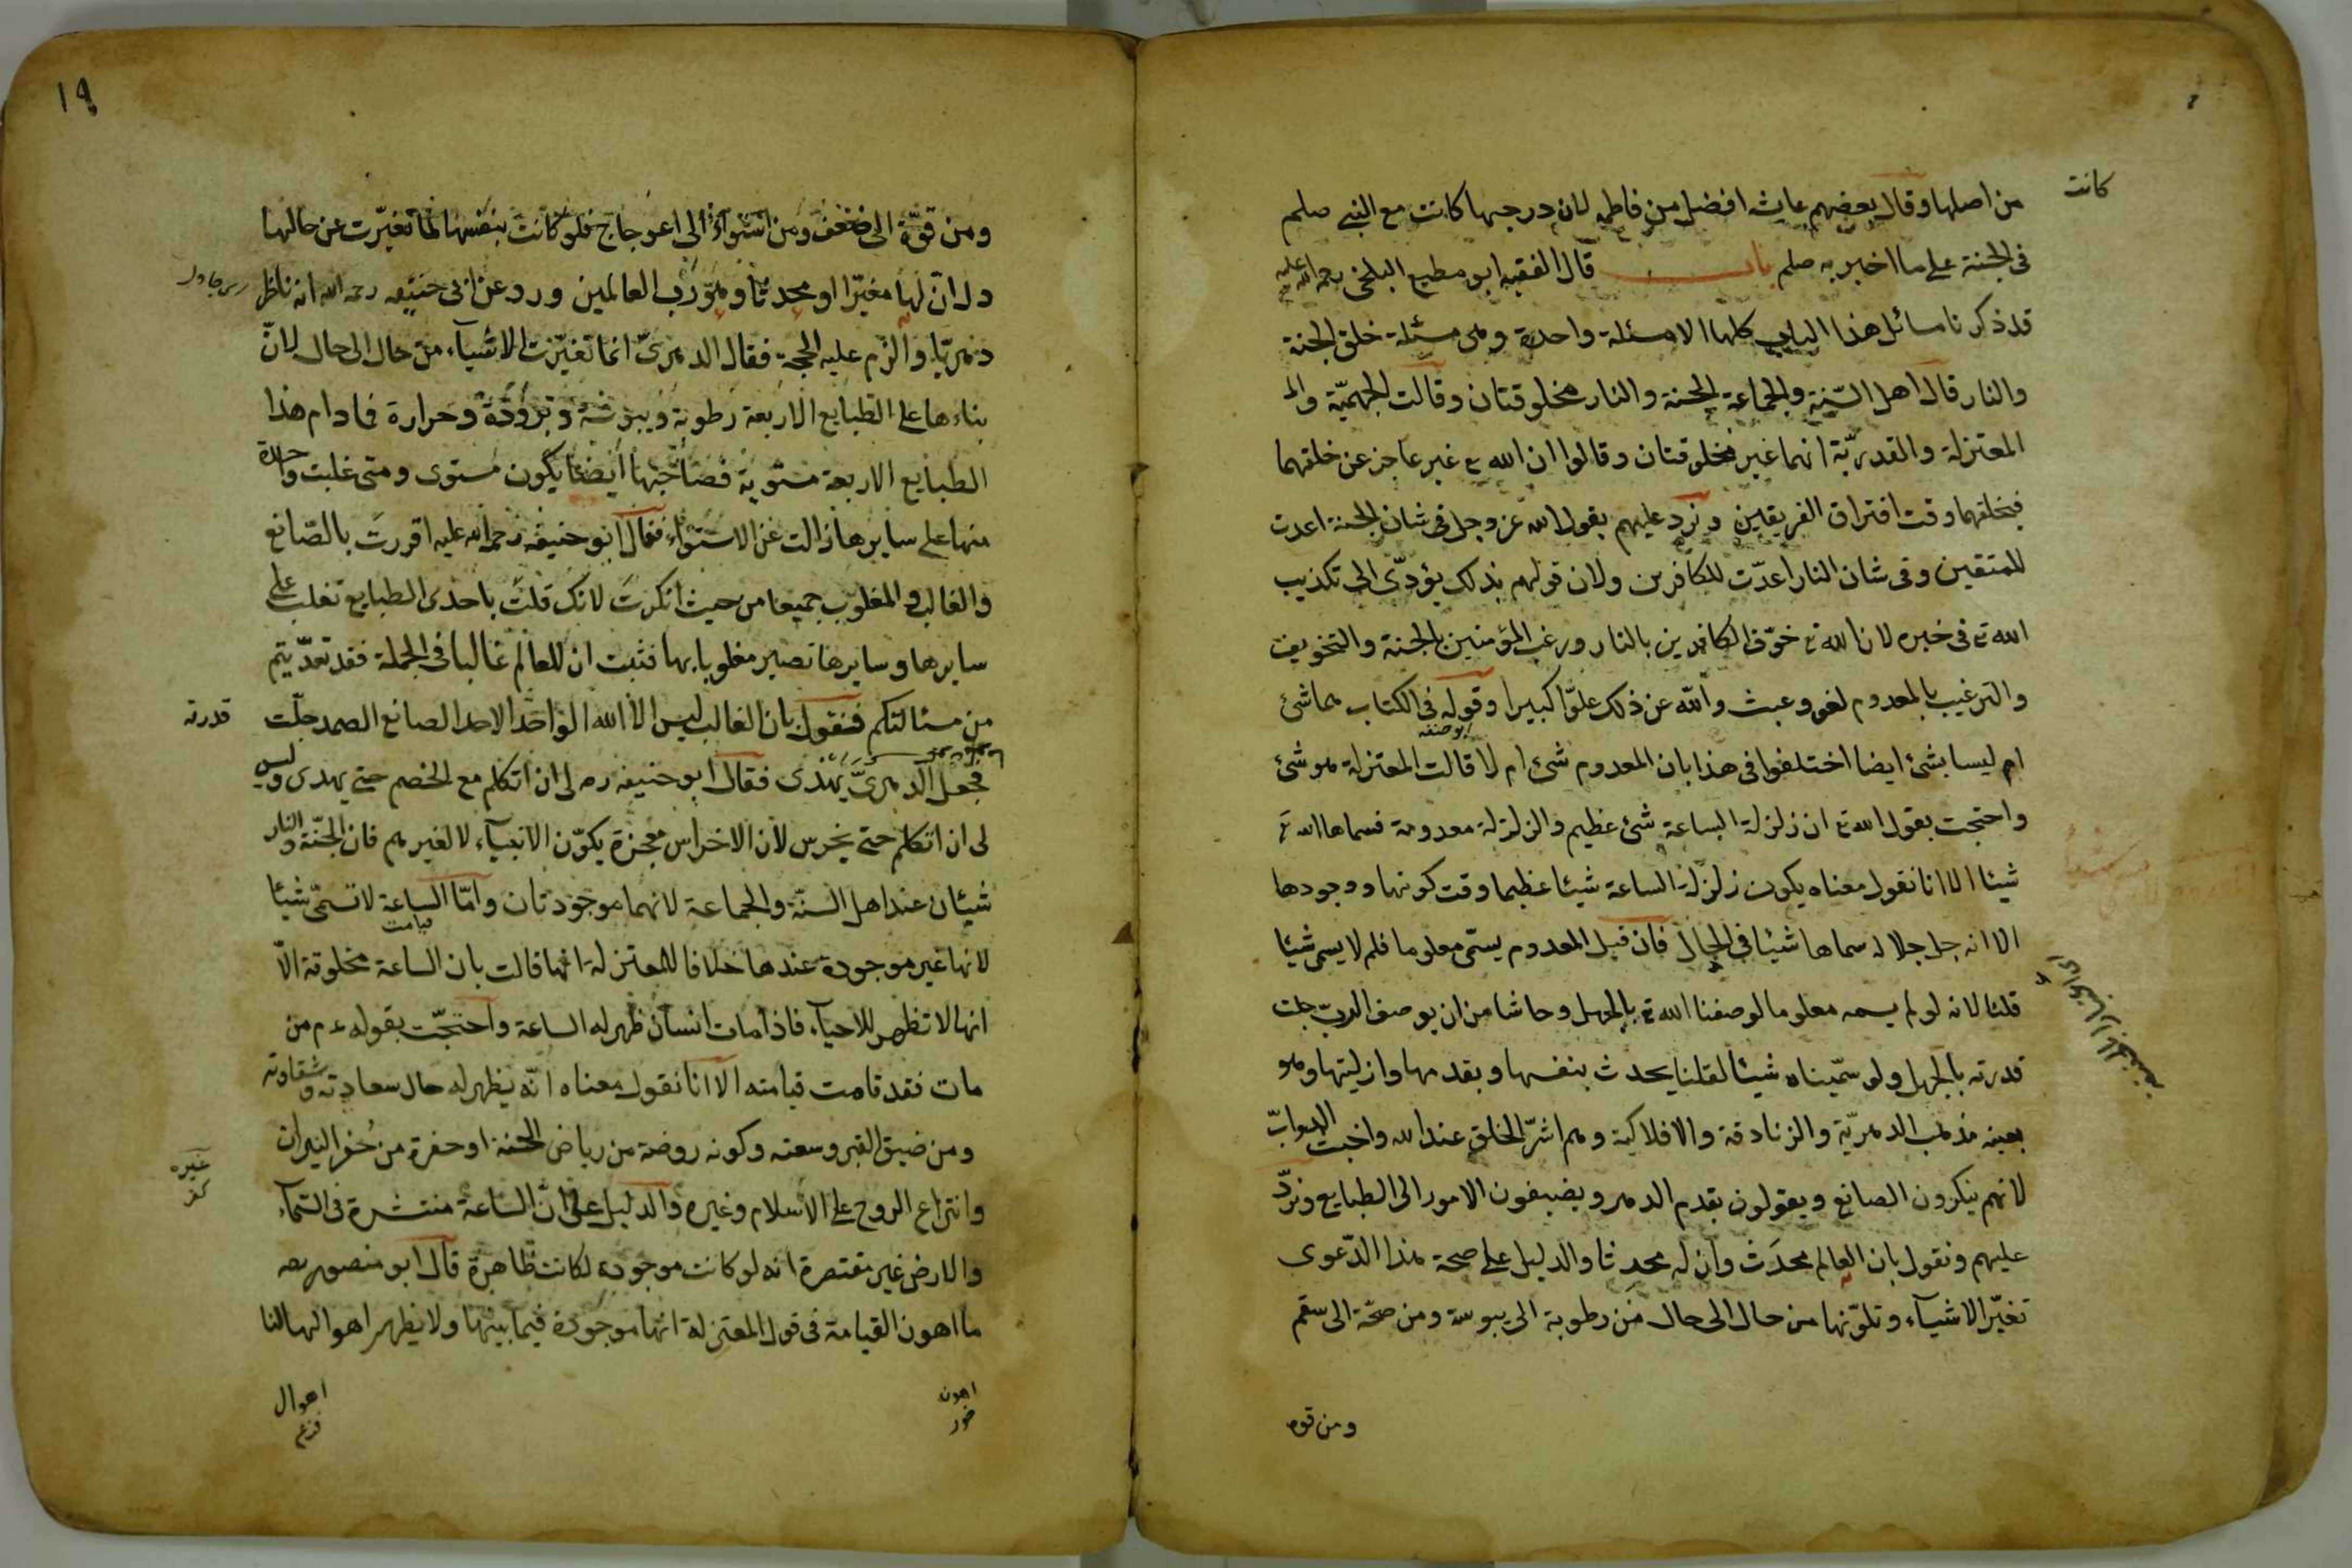 كانت
من اصلها وقال بعضهم عايشه افضل من فاطمه لان درجتها كانت مع النبي صلعم
فى الجنة على ما اخبر به صلعم باب قال الفقيه ابو مطيع البلخى رحمة الله عليه
قد ذكرنا مسائل هذا الباب كلها الا مسئلة واحدة وهى مسئلة خلق الجنة
والنار قال اهل السّنة والجماعة الجنة والنار مخلوقتان وقالت الجهميّة والـ
المعتزلة والقدريّة انهما غير مخلوقتان وقالوا ان الله تع غير عاجز عن خلقهما
فيخلقهما وقت افتراق الفريقين ونرد عليهم بقول الله عز وجل فى شان الجنة اعدت
للمتقين وفى شان النار اعدّت للكافرين ولان قولهم بذلك يؤدّى الى تكذيب
الله تع فى خبره لان الله تع خوّف الكافرين بالنار ورغب المؤمنين بالجنة والتخويف
والترغيب بالمعدوم لغو وعبث والله عن ذلك علوّا كبيرا وقوله فى الكتاب هما شئ
ام ليسا بشئ ايضا اختلفوا فى هذا بان المعدوم شئ ام لا قالت المعتزلة هو شئ
واحتجت بقول الله تع ان زلزلة الساعة شئ عظيم والزلزلة معدومة فسماها الله تع
شيئا الا انا نقول معناه يكون زلزلة الساعة شيئا عظيما وقت كونها ووجودها
الا انه جل جلاله سماها شيئا فى الحال فان قيل المعدوم يسمّى معلوما فلم لا يسمى شيئا
قلنا لانه لو لم يسمه معلوما لوصفنا الله تع بالجهل وحاشا من ان يوصف الربّ جلت
قدرته بالجهل ولو سمّيناه شيئا لقلنا يحدث بنفسها وبقدمها وازليتها وهو
بعينه مذهب الدهريّة والزنادقة والافلاكية وهم اشرّ الخلق عند الله واخبث الدوابّ
لانهم ينكرون الصانع ويقولون بقدم الدهر ويضيفون الامور الى الطبايع ونردّ
عليهم ونقول بان العالم محدَث وان له محدثا والدليل على صحة هذا الدّعوى
تغيّر الاشياء وتلوّنها من حال الى حال من رطوبة الى يبوسة ومن صحّة الى سقم
ومن قوه
١٩
ومن قوّة الى ضعف ومن استواء الى اعوجاج فلو كانت بنفسها لما تغيّرت عن حالها
دل انّ لها مغيّرا او محدثا وهو ربّ العالمين وروى عن ابى حنيفه رحمه الله انه ناظر
دهريّا والزم عليه الحجة فقال الدهرىّ انما تغيّرت الاشياء من حال الى حال لانّ
بناءها على الطبايع الاربعة رطوبة ويبوسة وبرودة وحرارة فما دام هذا
الطبايع الاربعة مستوية فصاحبها ايضا يكون مستوى ومتى غلبت واحدة
منها على سايرها زالت عن الاستواء فقال ابو حنيفه رحمة الله عليه اقررتَ بالصّانع
والغالب والمغلوب جميعا من حيث انكرتَ لانك قلتَ باحدى الطبايع تغلب على
سايرها وسايرها تصير مغلوبا بها فثبت ان للعالم غالبا فى الجملة فقد تعدّيتم
من مسئالتكم فنقول بان الغالب ليس الا الله الواحد الاحد الصانع الصمد جلّت
قدرته
فجعل الدهرىّ يهذى فقال ابو حنيفه ره لى ان اتكلم مع الخصم حتى يهدى وليس
لى ان اتكلم حتى يخرس لان الاخراس معجزة يكون الانبياء لا لغيرهم فان الجنّة والنار
شيئان عند اهل السنّة والجماعة لانهما موجودتان وامّا الساعة لا تسمّى شيئا
قيامت
لانها غير موجودة عندها خلافا للمعتزلة انها قالت بان الساعة مخلوقة الّا
انها لا تظهر للاحياء فاذا مات انسان ظهر له الساعة واحتجّت بقوله عم من
مات فقد قامت قيامته الا انا نقول معناه انّه يظهر له حال سعادته وشقاوته
ومن ضيق القبر وسعته وكونه روضة من رياض الجنة او حفرة من حُفر النيران
وانتزاع الروح على الاسلام وغيره والدليل على انّ الساعة منتشرة فى السّماء
غيره
كفر
والارض غير مقتصرة انه لو كانت موجودة لكانت ظاهرة قال ابو منصور رحه
ما اهون القيامة فى قول المعتزلة انها موجودة فيما بينها ولا يظهر اهوالها لنا
اهون
خور
اهوال